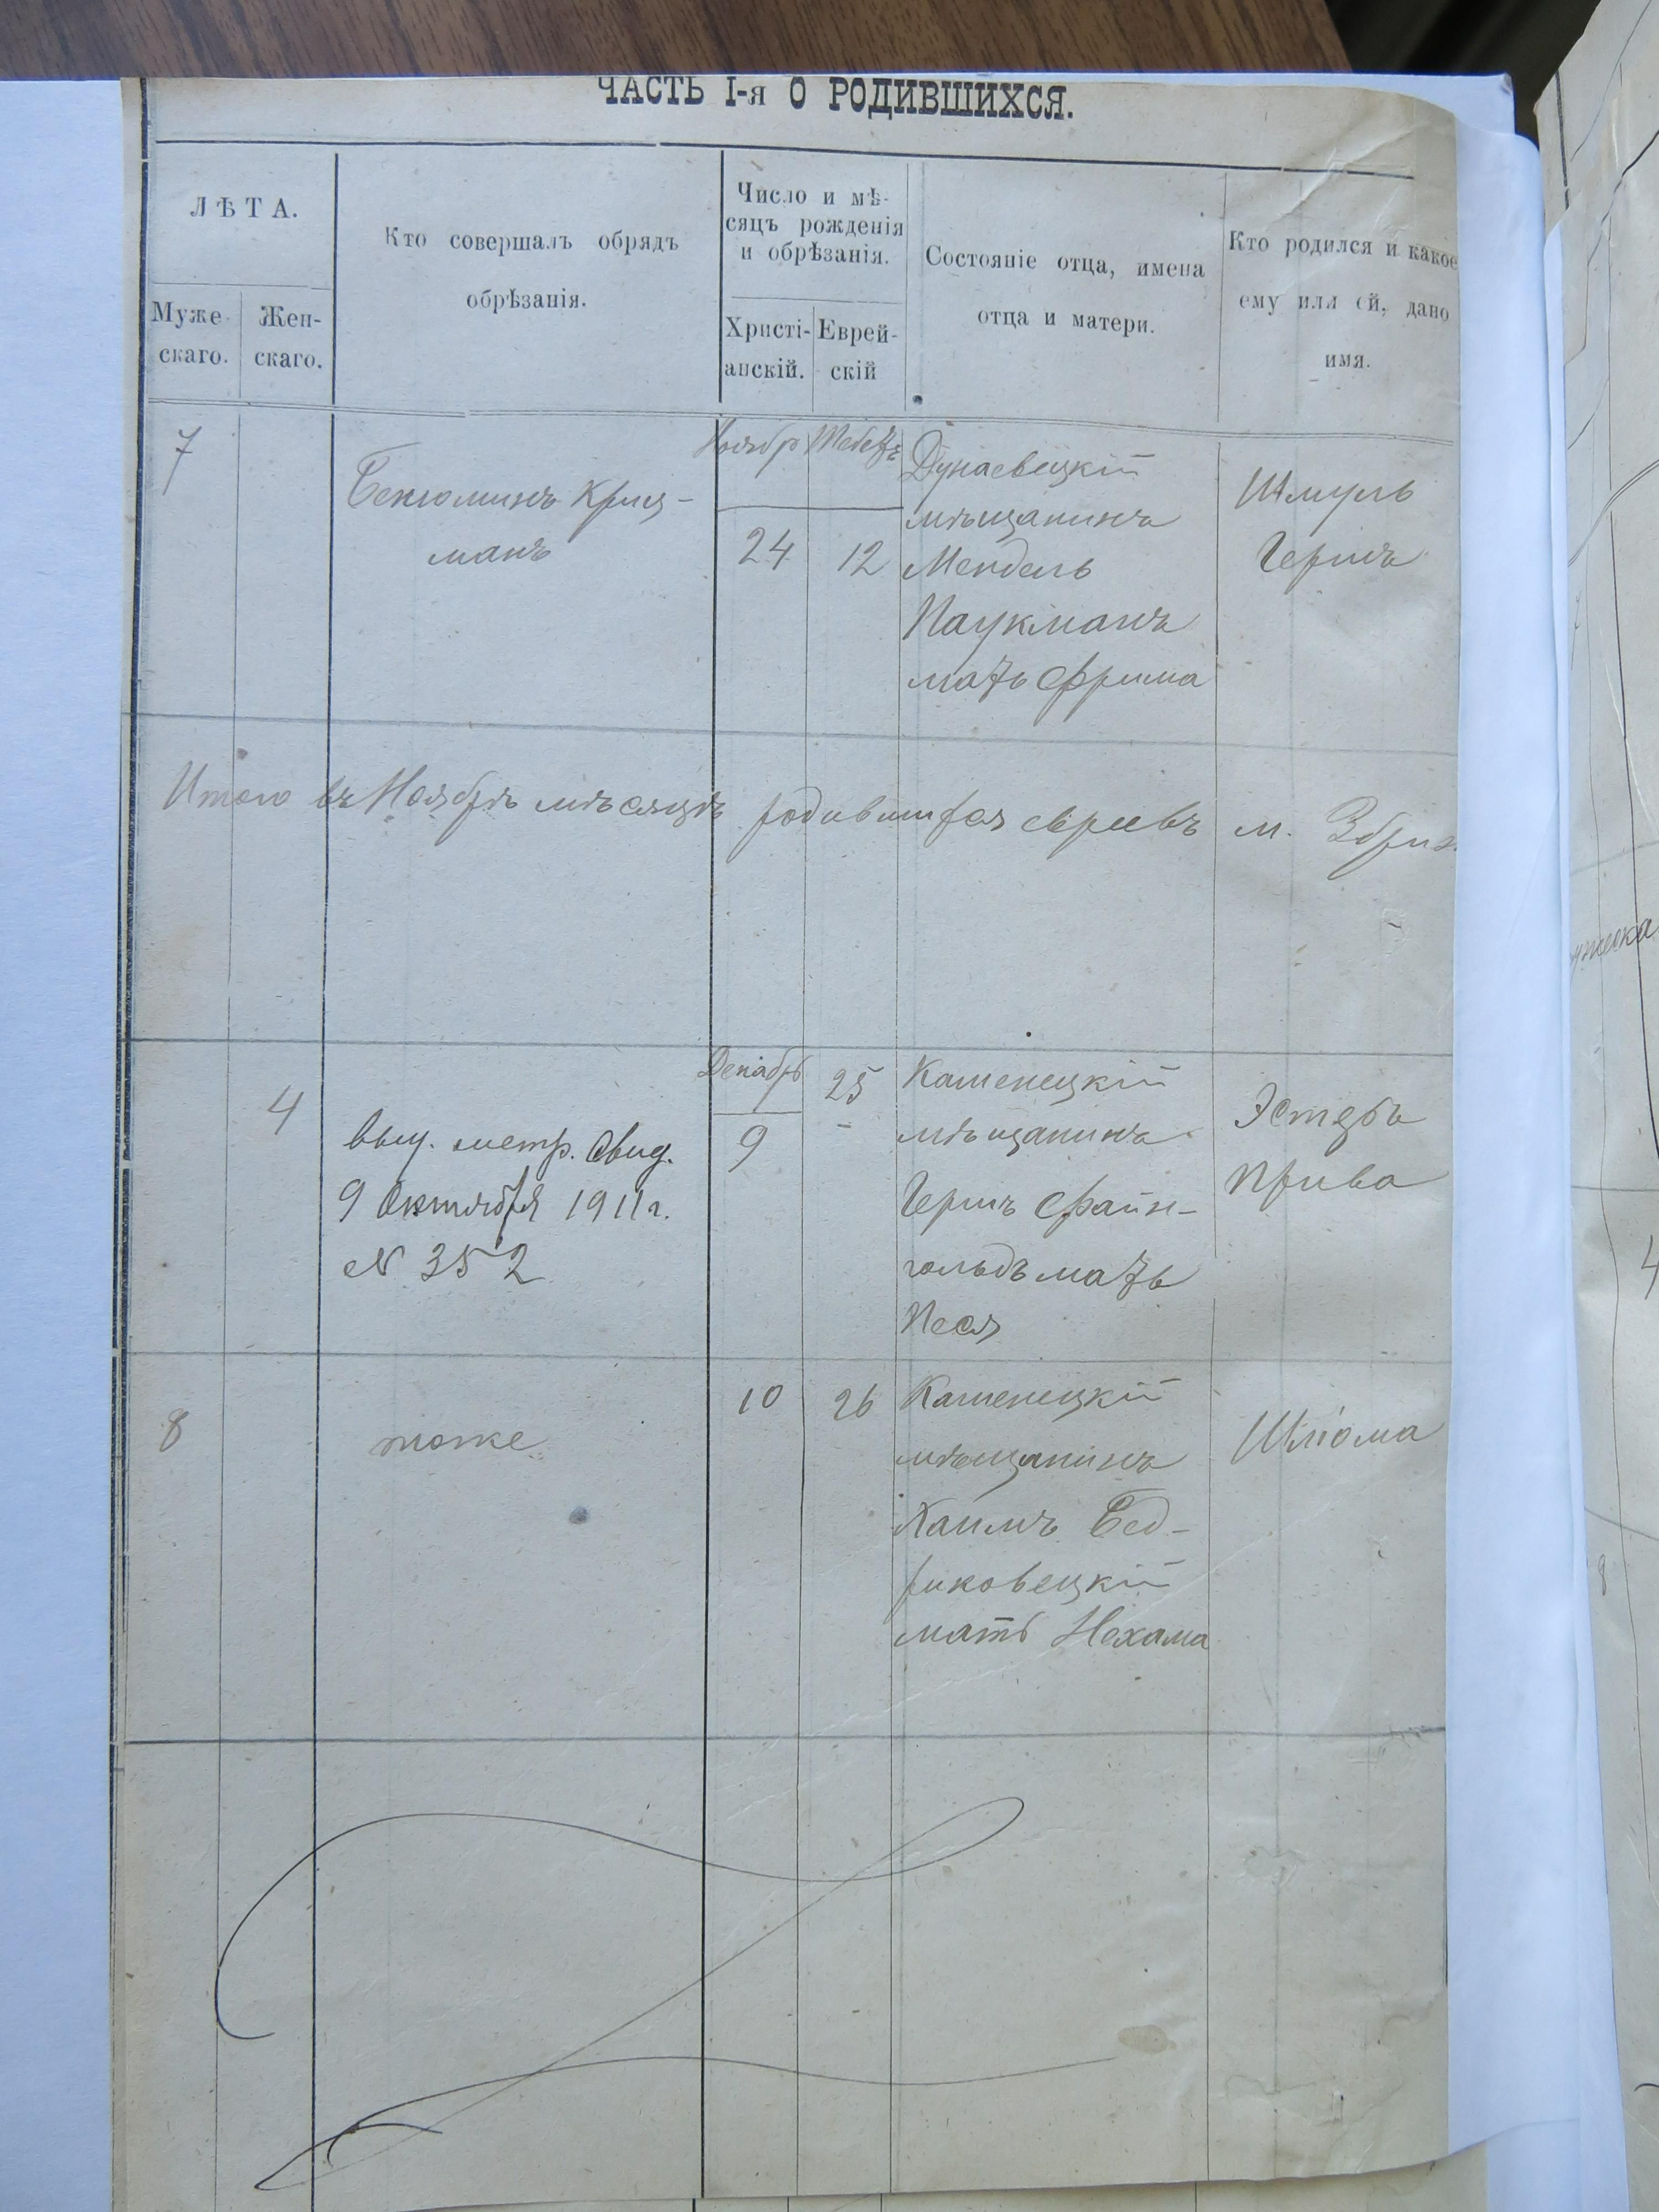 ЧАСТЬ I-я О РОДИВШИХСЯ.
ЛѢТА.
Муже-
скаго.
Жен-
скаго.
Кто совершалъ обрядъ
обрѣзанія.
Число и мѣ-
сяцъ рожденія
и обрѣзанія.
Христі-
анскій.
Еврей-
скій
Состояніе отца, имена
отца и матери.
Кто родился и какое
ему или ей, дано
имя.
7
Бенюминъ Криц-
манъ
Ноябрь
24
Тебетъ
12
Дунаевецкій
мѣщанинъ
Мендель
Паукманъ
мать Фрима
Шмуль
Гершъ
Итого въ Ноябрѣ мѣсяцѣ родившихся евреевъ м. Збриж
4
выд. метр. свид.
9 Октября 1911 г.
№ 352
Декабрь
9
25
Каменецкій
мѣщанинъ
Гершъ Файн-
гольдъ мать
Песя
Эстеръ
Прива
8
тоже
10
26
Каменецкій
мѣщанинъ
Хаимъ Бед-
риковецкій
мать Нехама
Шліома